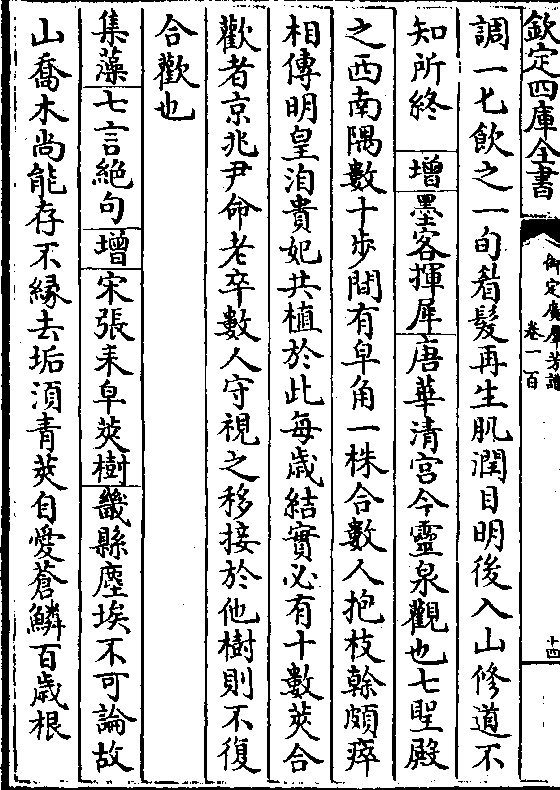 欽定四庫全書
御定廣羣芳譜
卷一百
十四
調一匕飲之一旬眉髮再生肌潤目明後入山修道不
知所終　增墨客揮犀唐華清宮今靈泉觀也七聖殿
之西南隅數十步間有皁角一株合數人抱枝榦頗瘁
相傳明皇洎貴妃共植於此每歲結實必有十數莢合
歡者京兆尹命老卒數人守視之移接於他樹則不復
合歡也
集藻七言絶句增宋張耒皁莢樹畿縣塵埃不可論故
山喬木尚能存不縁去垢湏青莢自愛蒼鱗百歳根